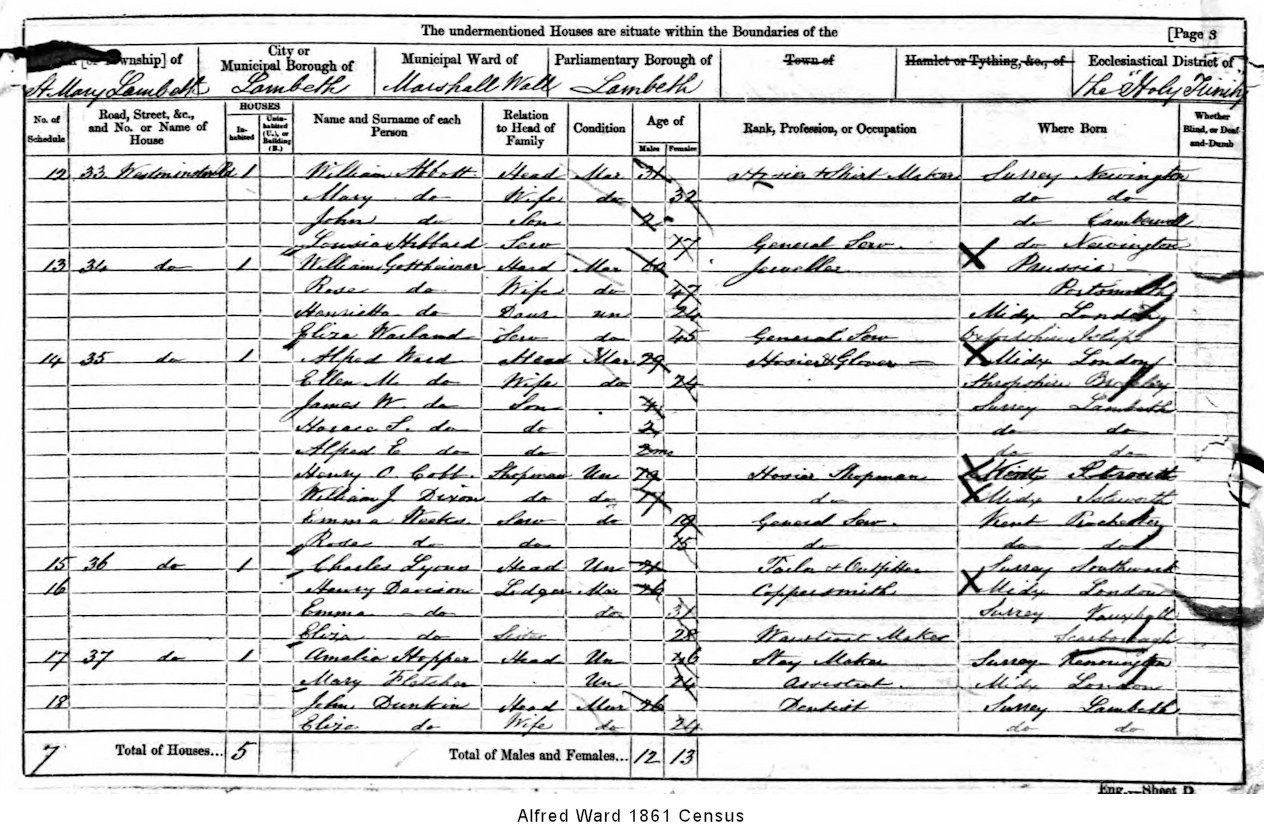 The undermentioned Houses are situate within the Boundaries of the [Page 3
Township] of City or Municipal Borough of Municipal Ward of Parliamentary Borough of Town of Hamlet or Tything, &c., of Ecclesiastical District of
St. Mary Lambeth Lambeth Marshall Wall Lambeth The "Holy Trinity
No. of Schedule Road, Street, &c., and No. or Name of House HOUSES Inhabited Uninhabited (U.), or Building (B.) Name and Surname of each Person Relation to Head of Family Condition Age of Males Females Rank, Profession, or Occupation Where Born Whether Blind, or Deaf-and-Dumb
12 33 Westminster Rd 1 William Abbott Head Mar 31 Hosier & Shirt Maker Surrey Newington
Mary do Wife do 32 do do
John do Son 2 do Camberwell
Louisa Hibbard Serv 17 General Serv. do Newington
13 34 do 1 William Gottheimer Head Mar 60 Jeweller Prussia
Rose do Wife do 47 Portsmouth
Henrietta do Daur un 24 Midx London
Eliza Serv do 45 General Serv Oxfordshire Islip
14 35 do 1 Alfred Ward Head Mar 29 Hosier & Glover Midx London
Ellen M. do Wife do 24 Shropshire Broseley
James W. do Son 4 Surrey Lambeth
Horace S. do do 2 do do
Alfred E do do do do
Henry O. Cobb Shopman Un 19 Hosier Shopman Kent
William J. Dixon do do 17 do Midx Isleworth
Emma Weekes Serv do 19 General Serv. Kent Rochester
Rose do do 15 do do do
15 36 do 1 Charles Lyons Head Un Tailor & Outfitter Surrey Southwark
16 Henry Davison Lodger Mar 26 Coppersmith Midx London
Emma do do 31 Surrey Vauxhall
Eliza do Sister 28 Waistcoat Maker Scarborough
17 37 do 1 Amelia Hopper Head Un 46 Stay Maker Surrey Kennington
Mary Fletcher Un 24 Assistant Midx London
18 John Dunkin Head Mar 26 Dentist Surrey Lambeth
Eliza do Wife do 24 do do
7 Total of Houses... 5 Total of Males and Females... 12 13
Eng.—Sheet D.
Alfred Ward 1861 Census